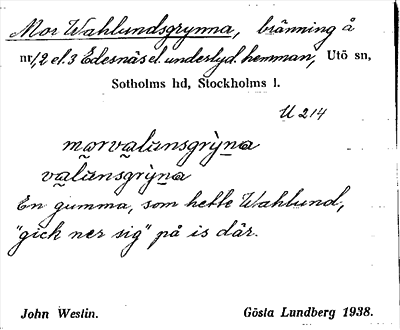 Mor Wahlundsgrynna, bränning å
nr 1, 2 el. 3 Edesnäs el. underlyd. hemman, Utö sn,
Sotholms hd, Stockholms l.
U 214
morvalunsgrỳna
valunsgrỳna
En gumma, som hette Wahlund,
"gick ner sig" på is där.
John Westin. Gösta Lundberg 1938.